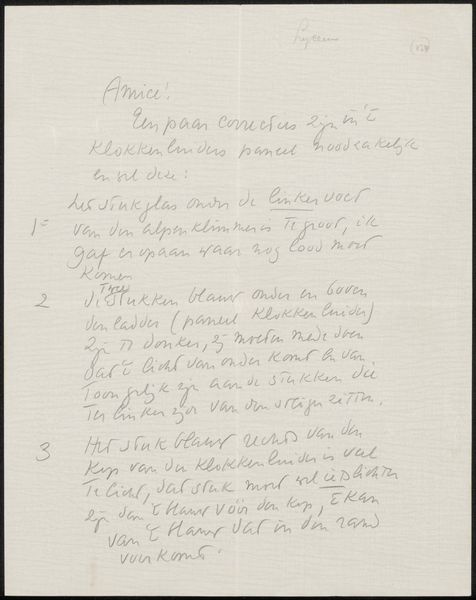 Amice!
Een paar correcties zijn in 't
klokkenluiders paneel noodzakelijk
en wel deze:
1= het stuk glas onder de linker voet
van den alpenklimmer is te groot, ik
gaf er op aan waar nog lood moet
komen
2 De twee stukken blauw onder en boven
den ladder (paneel klokkenluider)
zijn te donker, zij moeten mede doen
dat 't licht van onder komt en van
toon gelijk zijn aan de stukken die
ter linker zijde van den steiger zitten.
3 Het stuk blauw rechts van den
kop van den klokkenluider is veel
te licht, dat stuk moet wel iets lichter
zijn dan 't blauw vóór den kop, 't kan
van 't blauw dat in den rand
voorkomt.